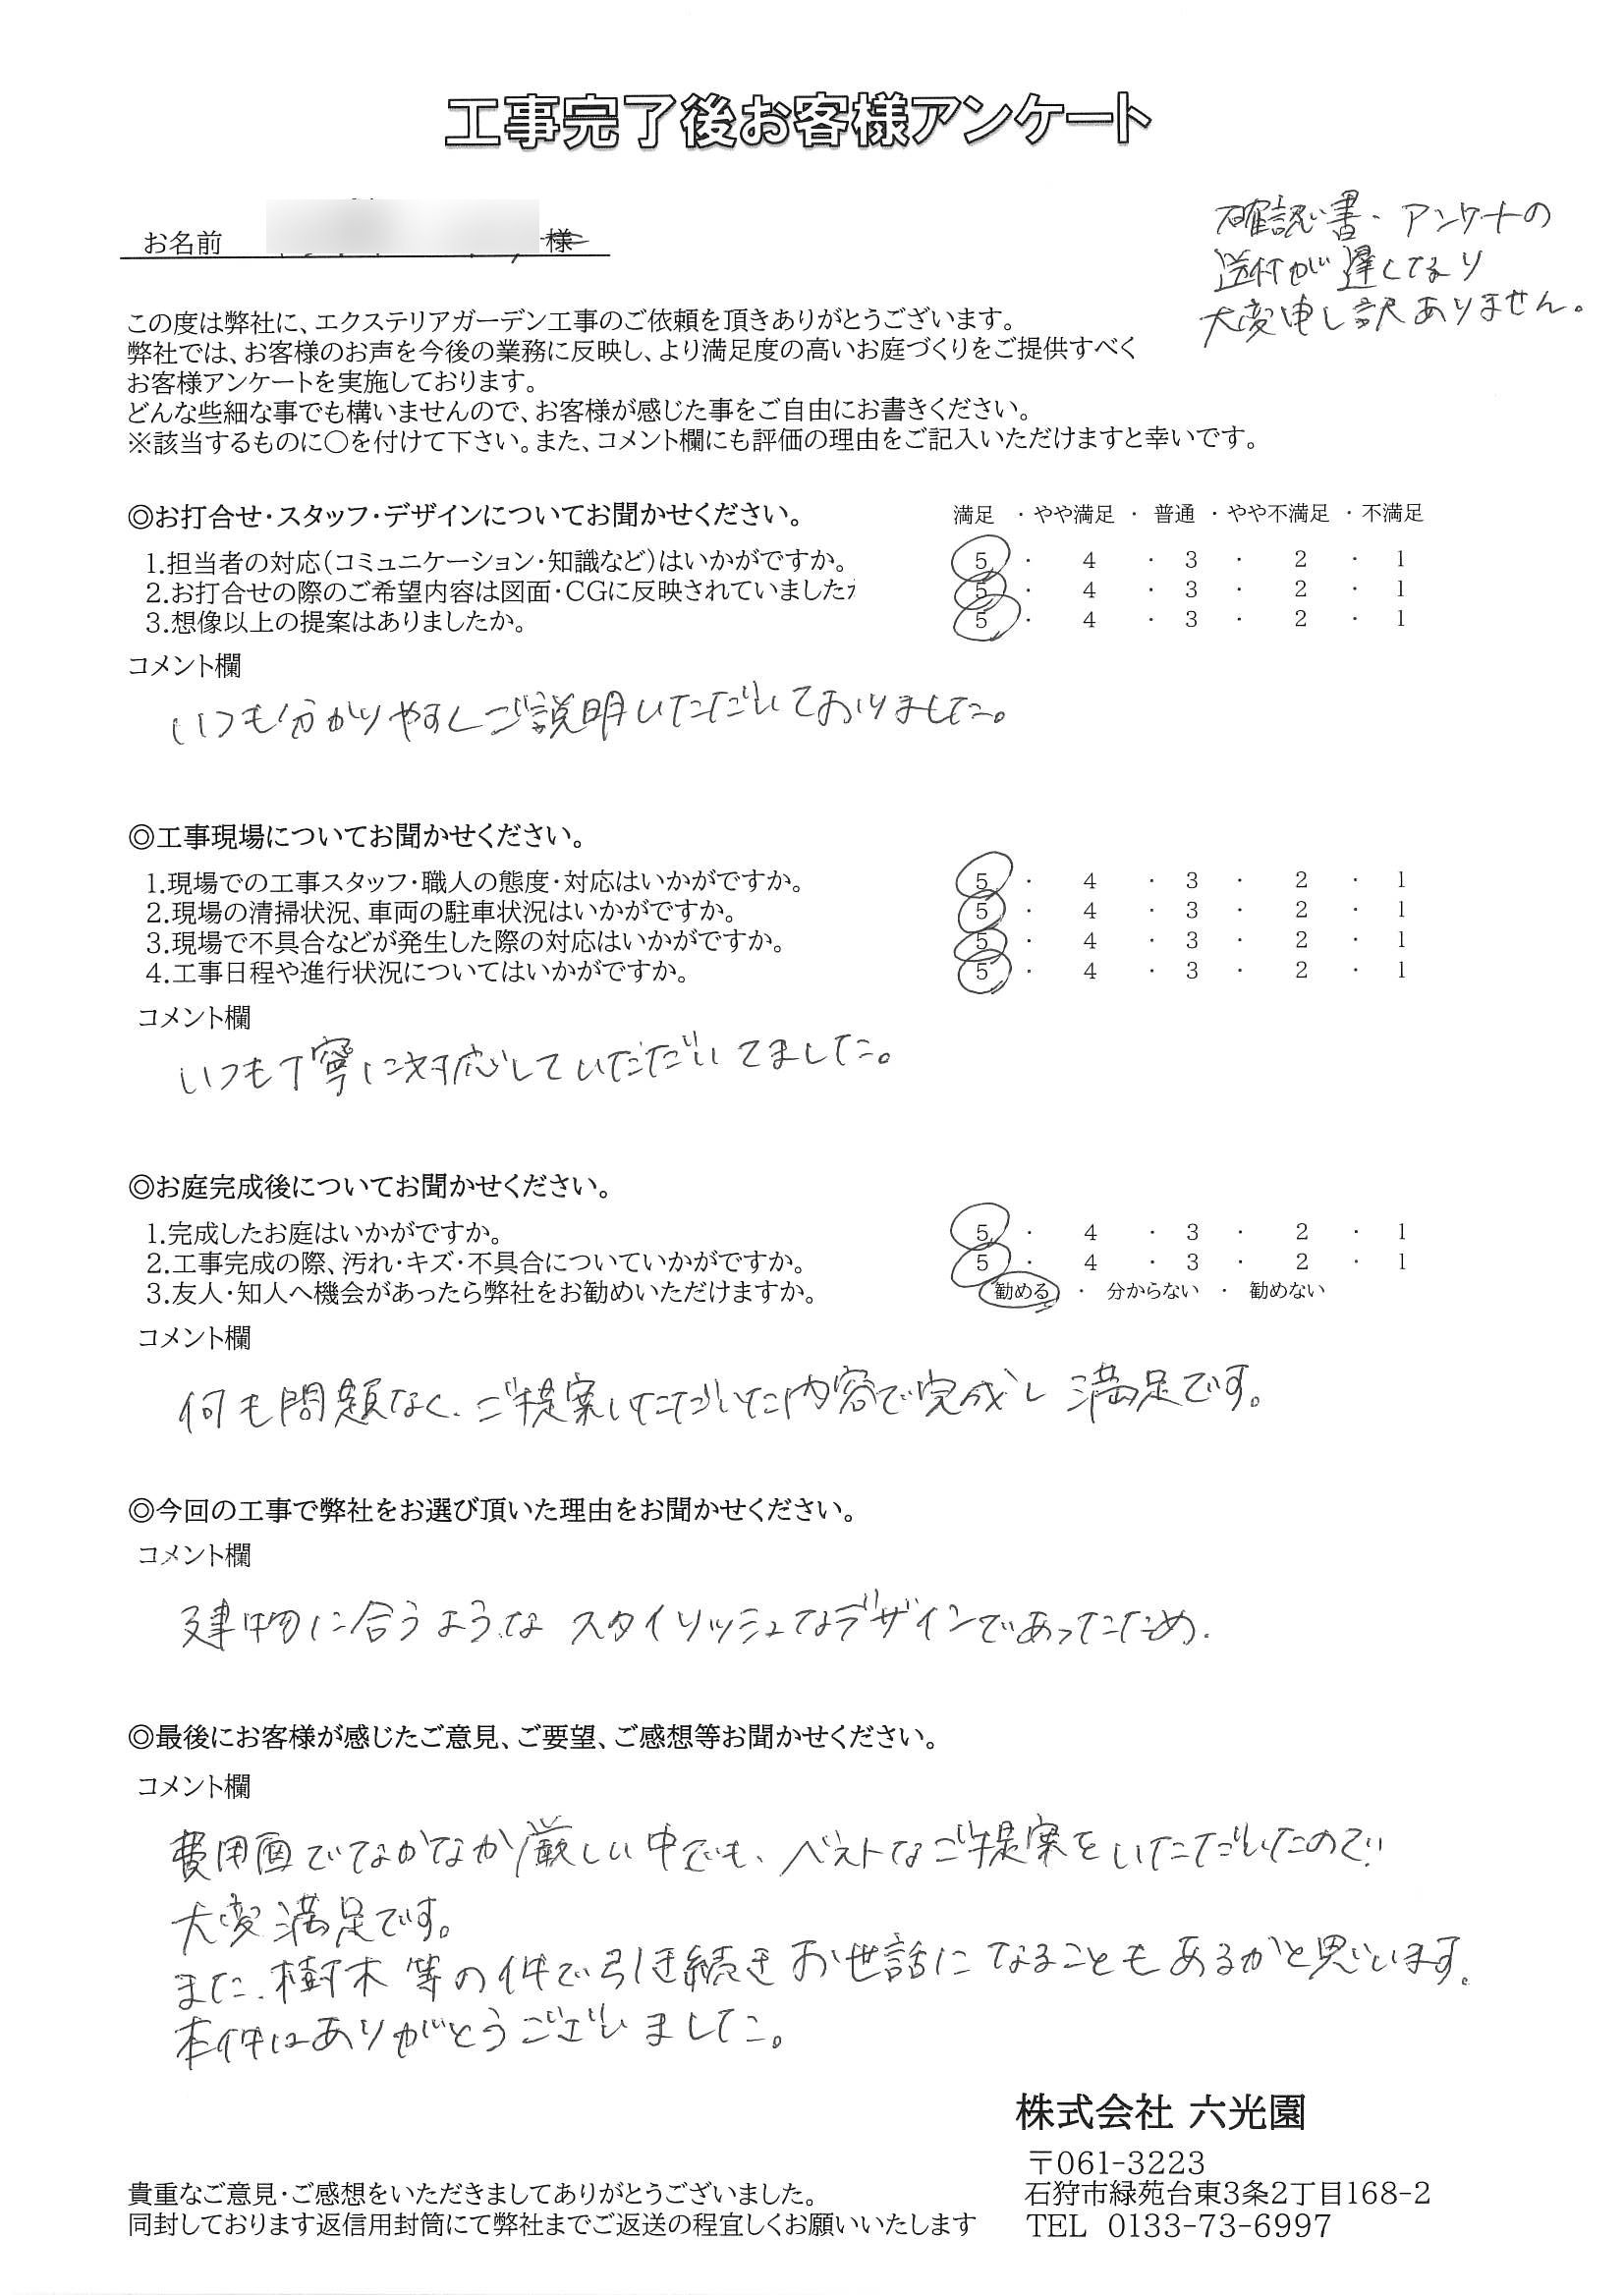 工事完了後お客様アンケート
お名前 様
確認書・アンケートの
送付が遅くなり
大変申し訳ありません。
この度は弊社に、エクステリアガーデン工事のご依頼を頂きありがとうございます。
弊社では、お客様のお声を今後の業務に反映し、より満足度の高いお庭づくりをご提供すべく
お客様アンケートを実施しております。
どんな些細な事でも構いませんので、お客様が感じた事をご自由にお書きください。
※該当するものに〇を付けて下さい。また、コメント欄にも評価の理由をご記入いただけますと幸いです。
◎お打合せ・スタッフ・デザインについてお聞かせください。 満足 ・やや満足 ・ 普通 ・やや不満足 ・不満足
1.担当者の対応(コミュニケーション・知識など)はいかがですか。 5 ・ 4 ・ 3 ・ 2 ・ 1
2.お打合せの際のご希望内容は図面・CGに反映されていました 5 ・ 4 ・ 3 ・ 2 ・ 1
3.想像以上の提案はありましたか。 5 ・ 4 ・ 3 ・ 2 ・ 1
コメント欄
いつも分かりやすくご説明いただいておりました。
◎工事現場についてお聞かせください。
1.現場での工事スタッフ・職人の態度・対応はいかがですか。 5 ・ 4 ・ 3 ・ 2 ・ 1
2.現場の清掃状況、車両の駐車状況はいかがですか。 5 ・ 4 ・ 3 ・ 2 ・ 1
3.現場で不具合などが発生した際の対応はいかがですか。 5 ・ 4 ・ 3 ・ 2 ・ 1
4.工事日程や進行状況についてはいかがですか。 5 ・ 4 ・ 3 ・ 2 ・ 1
コメント欄
いつも丁寧に対応していただいてました。
◎お庭完成後についてお聞かせください。
1.完成したお庭はいかがですか。 5 ・ 4 ・ 3 ・ 2 ・ 1
2.工事完成の際、汚れ・キズ・不具合についていかがですか。 5 ・ 4 ・ 3 ・ 2 ・ 1
3.友人・知人へ機会があったら弊社をお勧めいただけますか。 勧める ・ 分からない ・ 勧めない
コメント欄
何も問題なく、ご提案いただいた内容で完成し満足です。
◎今回の工事で弊社をお選び頂いた理由をお聞かせください。
コメント欄
建物に合うような スタイリッシュなデザインであったため.
◎最後にお客様が感じたご意見、ご要望、ご感想等お聞かせください。
コメント欄
費用面でなかなか厳しい中でも、ベストなご提案をいただいたので
大変満足です。
また、樹木等の件で引き続きお世話になることもあるかと思います。
本件はありがとうございました。
株式会社 六光園
〒061-3223
貴重なご意見・ご感想をいただきましてありがとうございました。 石狩市緑苑台東3条2丁目168-2
同封しております返信用封筒にて弊社までご返送の程宜しくお願いいたします TEL 0133-73-6997